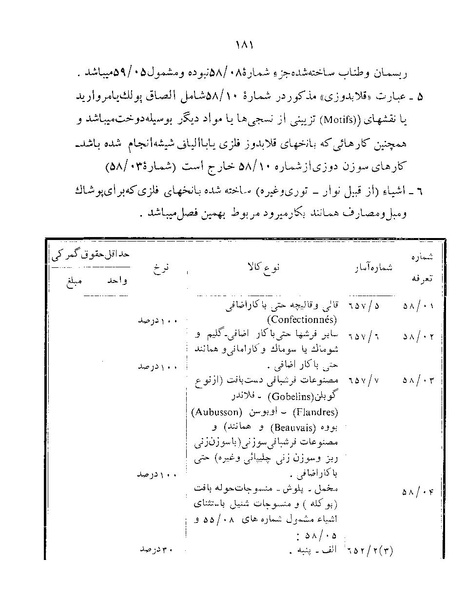 ۱۸۱
ریسمان وطناب ساخته‌شده‌جزء شمارهٔ ۵۸/۰۸نبوده ومشمول۵۹/۰۵میباشد .
۵ ـ عبارت «قلابدوزی» مذکور در شمارهٔ ۵۸/۱۰شامل الصاق پولك‌یامروارید
یا نقشهای ((Motifs) تزیینی از نسجی‌ها یا مواد دیگر بوسیله‌دوخت‌میباشد و
همچنین کارهائی که بانخهای قلابدوز فلزی یاباالیافی شیشه‌انجام شده باشد.
کارهای سوزن دوزی ازشماره ۵۸/۱۰ خارج است (شمارهٔ ۵۸/۰۳)
۶ ـ اشیاء (از قبیل نوار ـ توری‌وغیره) ساخته شده بانخهای فلزی که‌برای‌پوشاك
ومبل‌ومصارف همانند بکارمیرود مربوط بهمین فصل‌میباشد.
شماره تعرفه شماره‌آمار نوع کالا نرخ حداقل‌حقوق‌گمرکی
واحد مبلغ
۵۸/۰۱ ۶۵۷/۵ قالی وقالیچه حتی باکاراضافی
(Confectionnés) ۱۰۰درصد
۵۸/۰۲ ۶۵۷/۶ سایر فرشها حتی‌باکار اضافی‌ـ گلیم و
شوماك یا سوماك وکارامانی‌وهمانند
حتی باکار اضافی . ۱۰۰درصد
۵۸/۰۳ ۶۵۷/۷ مصنوعات فرشبافی دست‌بافت (ازنوع
گوبلن(Gobelins) ـ فلاندر
(Flandres) ـ اوبوسن (Aubusson)
بووه (Beauvais) و همانند) و
مصنوعات فرشبافی‌سوزنی(باسوزن‌زنی
ریز وسوزن زنی چلیپائی وغیره) حتی
باکاراضافی. ۱۰۰درصد
۵۸/۰۴ مخمل ـ پلوش ـ منسوجات‌حوله بافت
(بوکله ) و منسوجات شنیل باستثنای
اشیاء مشمول شماره های ۵۵/۰۸ و
۵۸/۰۵ :
۶۵۲/۲(۳) الف ـ پنبه . ۳۰درصد